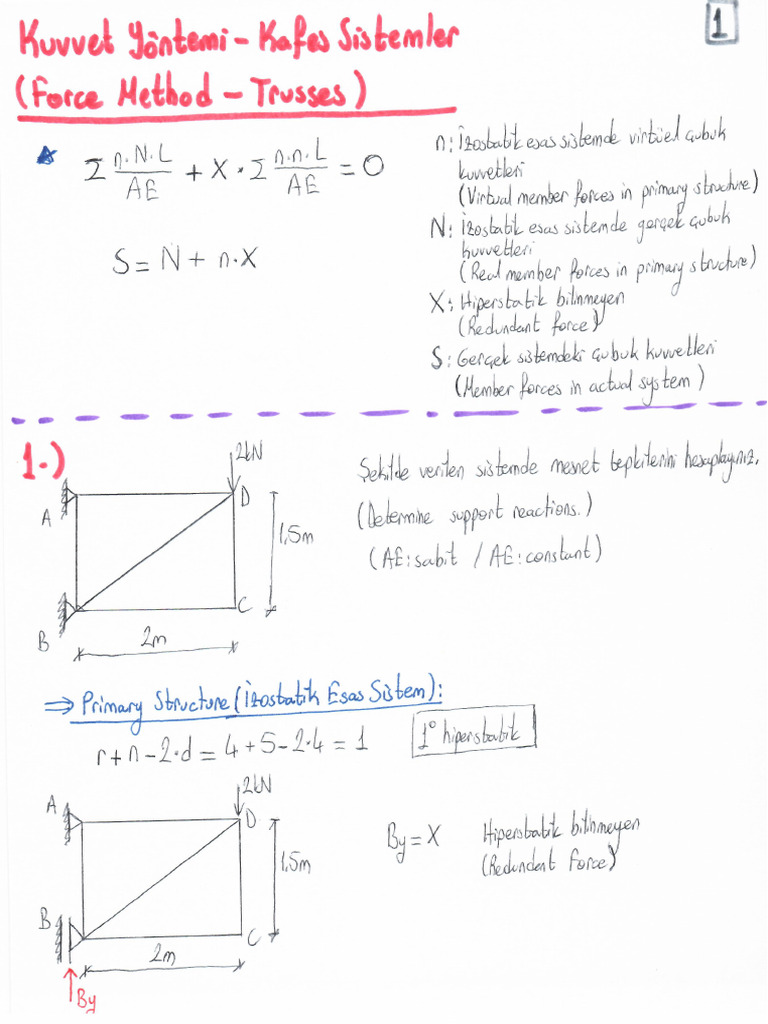 1
Kuvvet Yöntemi - Kafes Sistemler
(Force Method - Trusses)
Σ n.N.L / AE + X · Σ n.n.L / AE = 0
S = N + n.X
n: İzostatik esas sistemde virtüel çubuk
kuvvetleri
(Virtual member forces in primary structure)
N: İzostatik esas sistemde gerçek çubuk
kuvvetleri
(Real member forces in primary structure)
X: Hiperstatik bilinmeyen
(Redundant force)
S: Gerçek sistemdeki çubuk kuvvetleri
(Member forces in actual system)
1-)
2kN
A
D
1,5m
B
C
2m
Şekilde verilen sistemde mesnet tepkilerini hesaplayınız.
(Determine support reactions.)
(AE: sabit / AE: constant)
⇒ Primary Structure (İzostatik Esas Sistem):
r+n-2·d = 4+5-2·4 = 1
1° hiperstatik
2kN
A
D
1,5m
B
C
2m
By
By = X
Hiperstatik bilinmeyen
(Redundent Force)